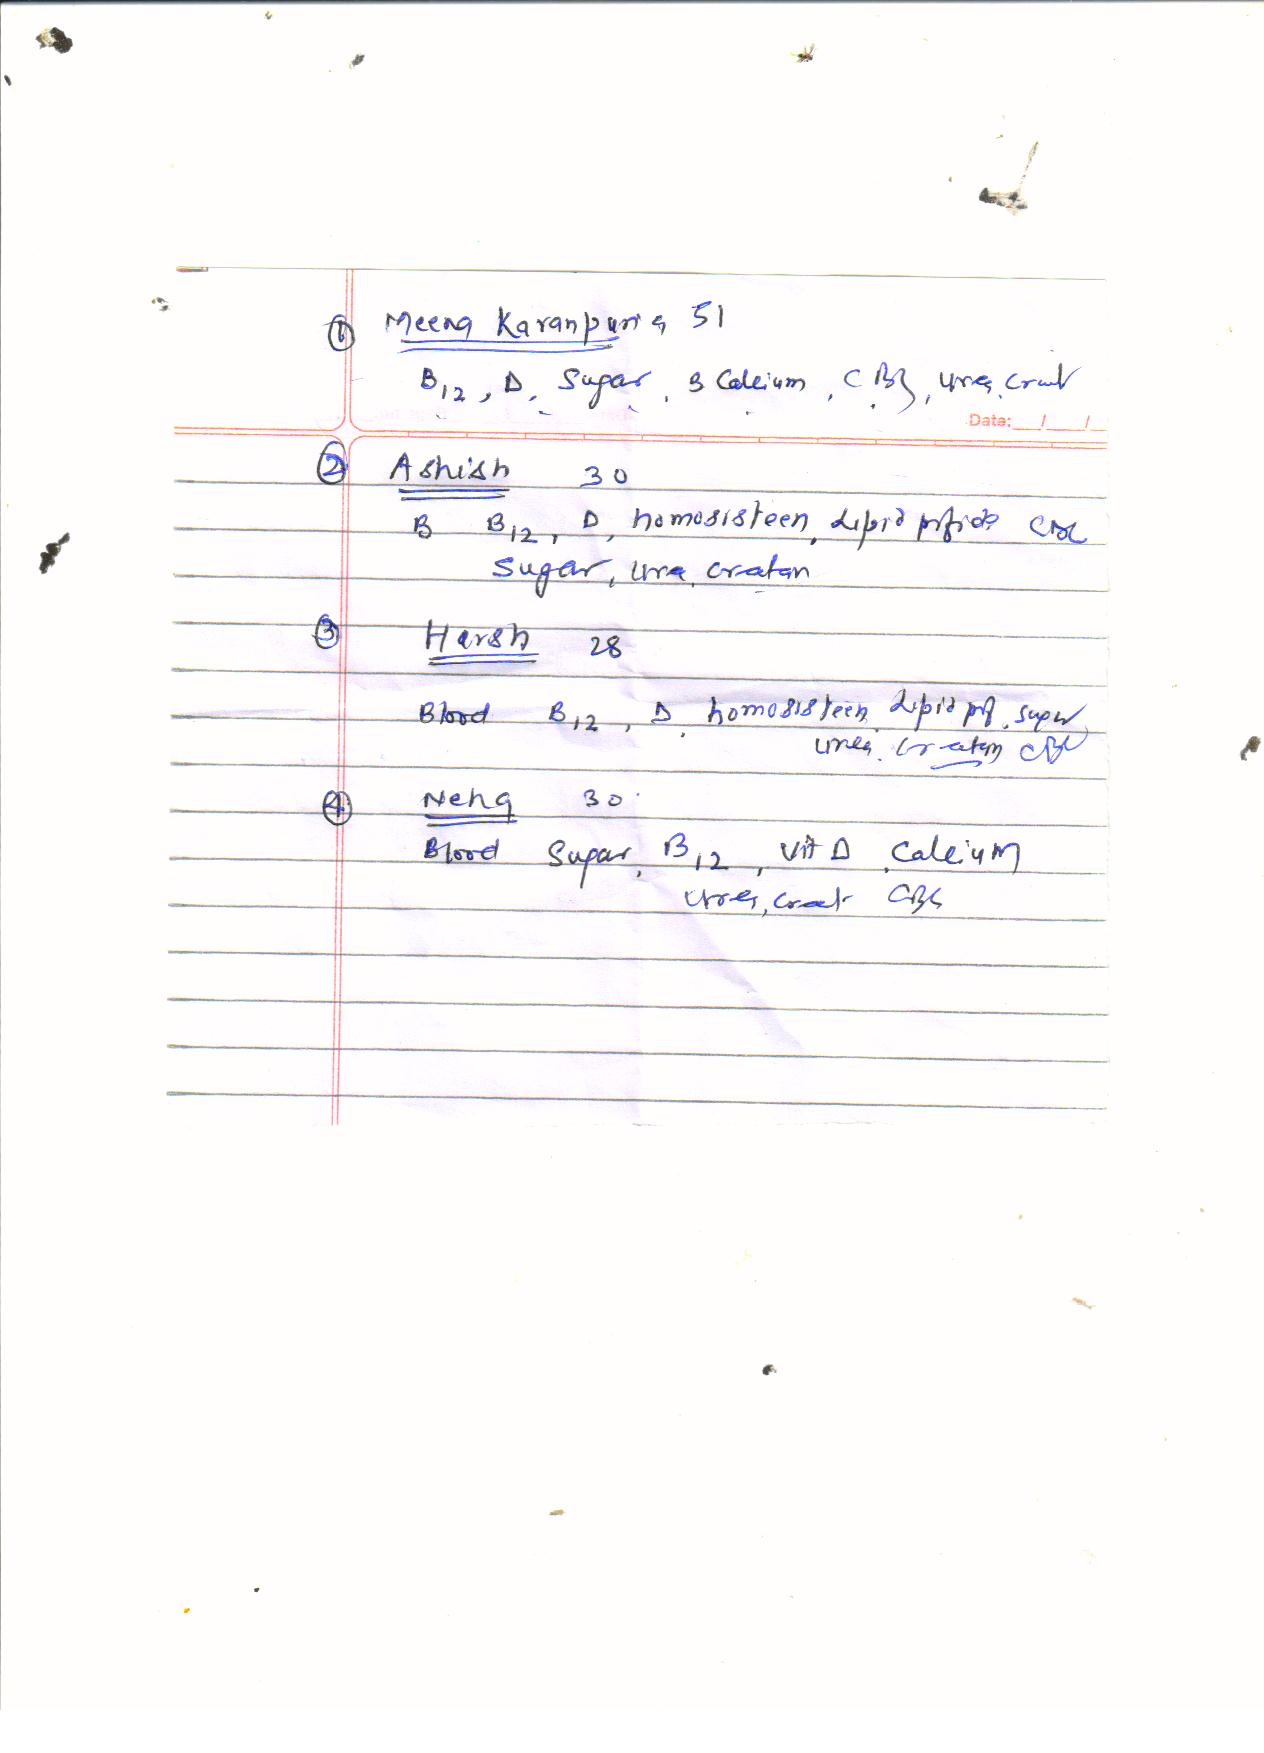 ① Meena Karanpuria 51
B12, D, Sugar, S Calcium, CBC, Urea, Creat
Date: __/__/__
② Ashish 30
B B12, D, homosisteen, Lipid CBC
Sugar, Ure, cratan
③ Harsh 28
Blood B12, D, homosisteen, Lipid prf, sugar
Urea, Cratan CBC
④ Neha 30
Blood Sugar, B12, Vit D, Calcium
Urea, Creat CBC